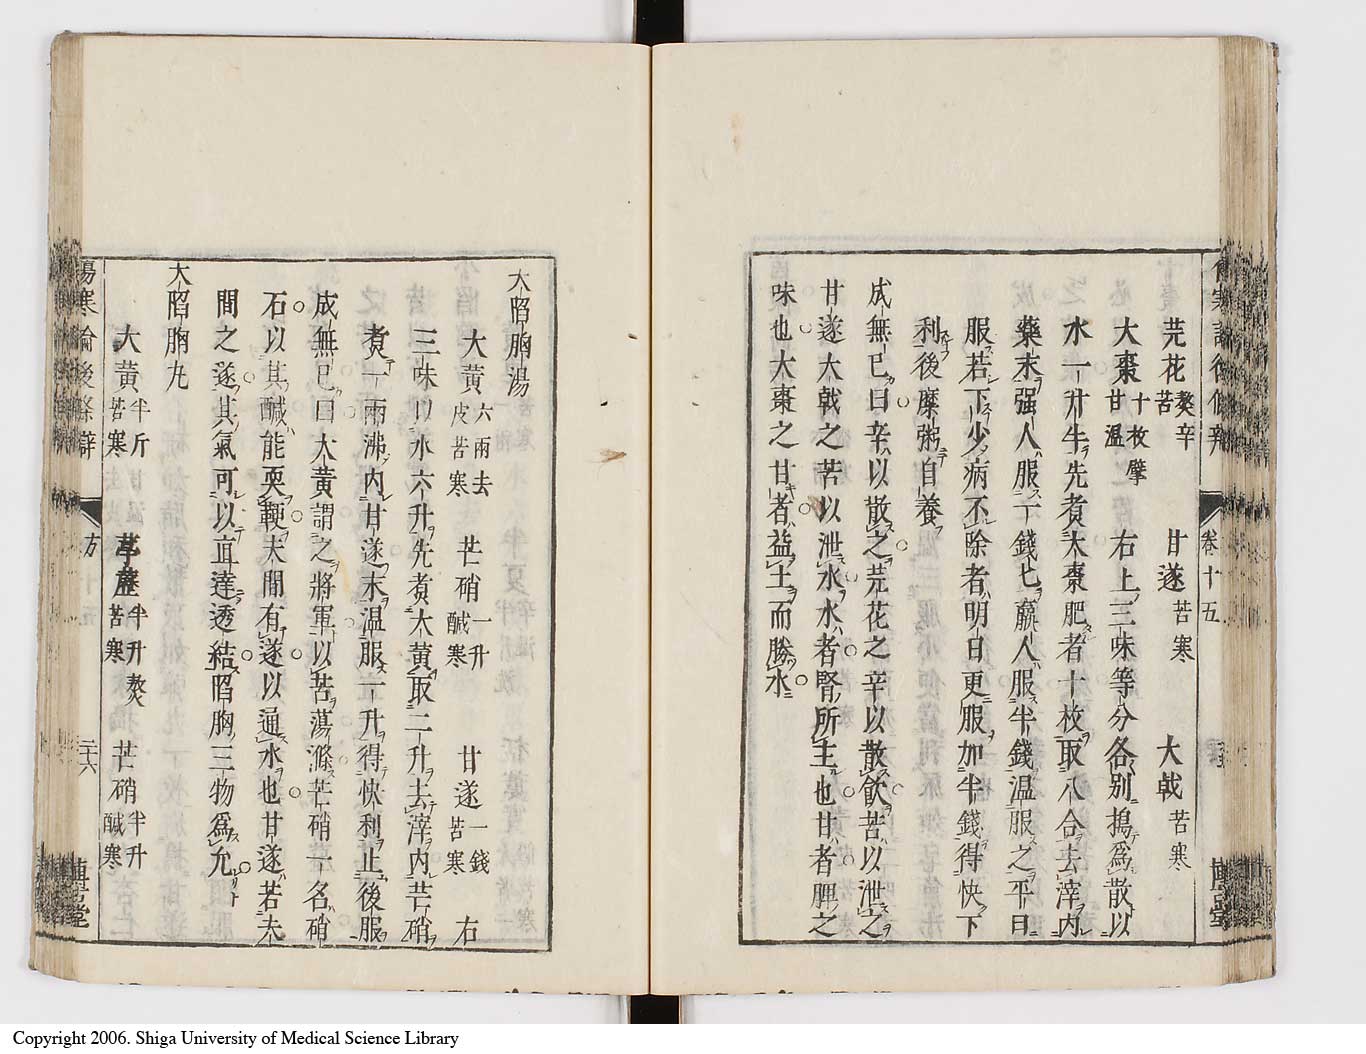 芫花 熬辛苦 甘遂 苦寒 大戟 苦寒
大棗 十枚擘甘温 右上三味等分各別搗為散以
水一升半先煮大棗肥者十枚取八合去滓内
藥末强人服一錢七羸人服半錢温服之平旦
服若下少病不除者明日更服加半錢得快下
利後糜粥自養
成無已曰辛以散之芫花之辛以散飲苦以泄之
甘遂大戟之苦以泄水水者腎所主也甘者脾之
味也大棗之甘者益土而勝水
卷十五
大陷胸湯
大黄 六兩去皮苦寒 芒硝 一升鹹寒 甘遂 一錢苦寒 右
三味以水六升先煮大黄取二升去滓内芒硝
煮一兩沸内甘遂末温服一升得快利止後服
成無已曰大黄謂之將軍以苦蕩滌芒硝一名硝
石以其鹹能耎鞕夫間有遂以通水也甘遂若夫
間之遂其氣可以直達透結陷胸三物為允
大陷胸丸
大黄 半斤苦寒 葶藶 半升熬苦寒 芒硝 半升鹹寒
傷寒論後條辯
方
二十六
博古堂
Copyright 2006. Shiga University of Medical Science Library